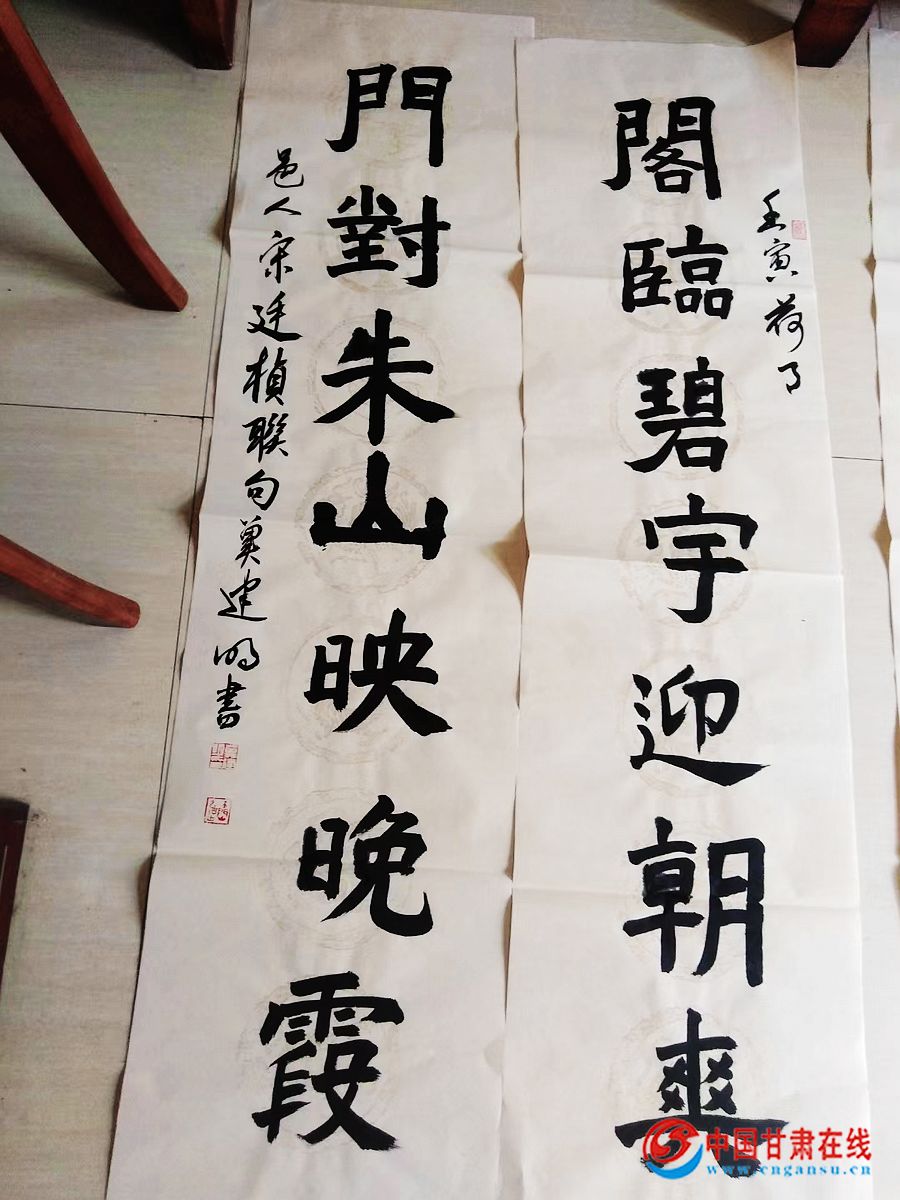 閣臨碧宇迎朝爽
壬寅荷月
門對朱山映晚霞
邑人宋廷楨聯句冀建明書
中国甘肃在线
www.cngansu.cn